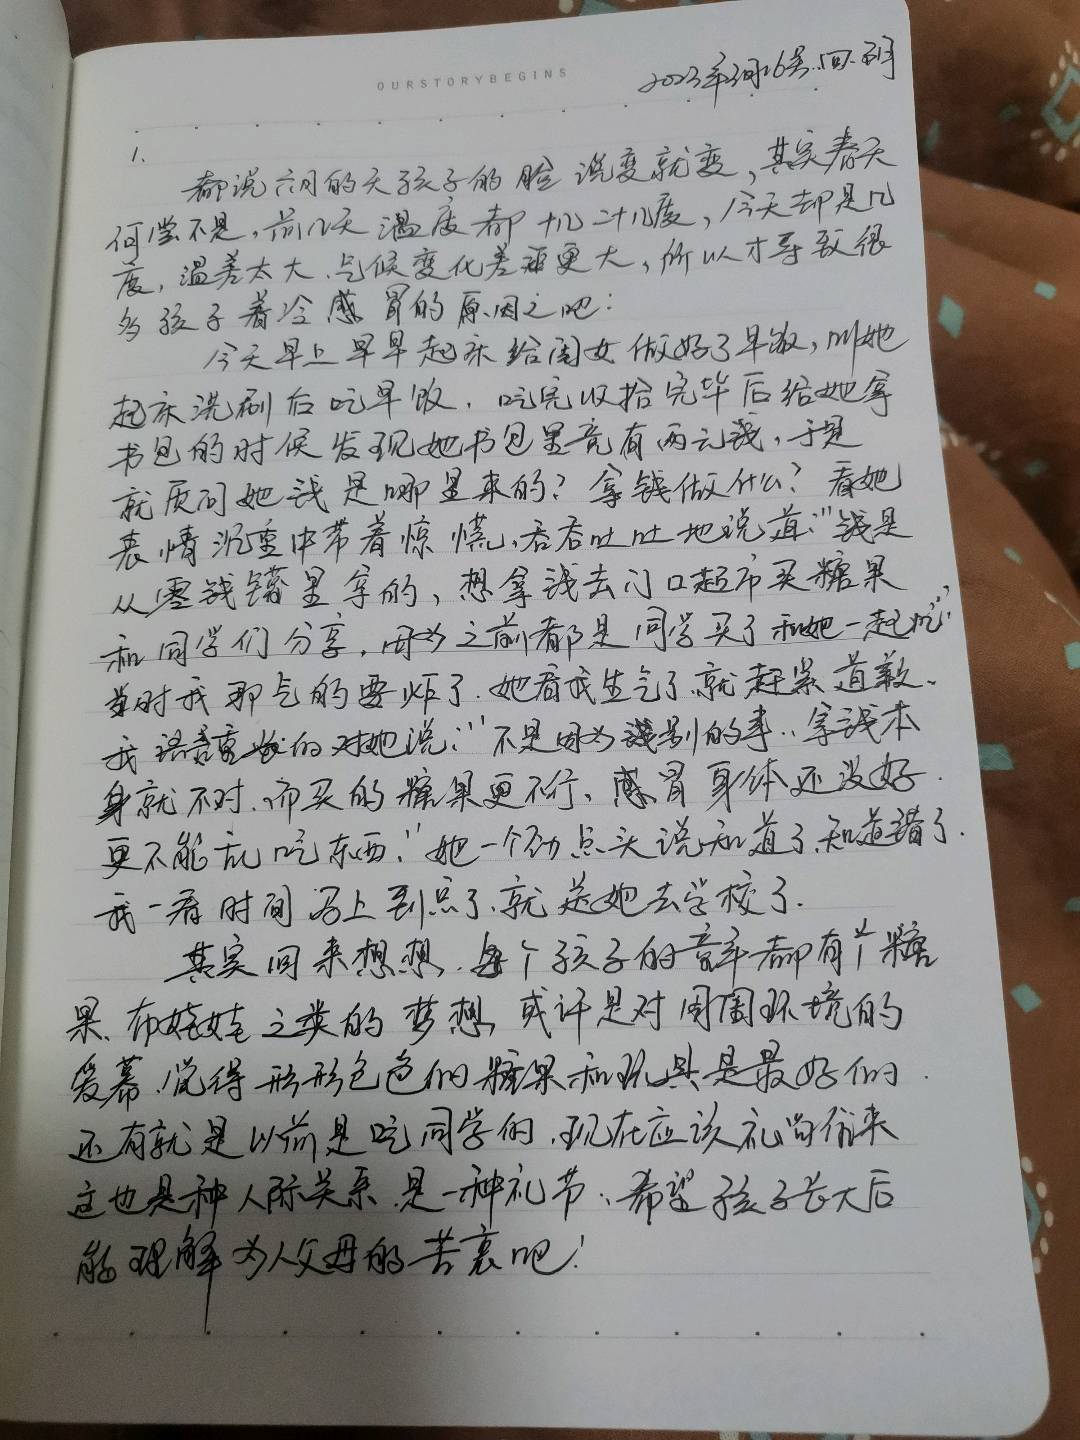 OURSTORYBEGINS
2023年3月16号.周.
1.
都说六月的天孩子的脸说变就变，其实春天
何尝不是，前几天温度都十几二十几度，今天却是几
度，温差太大、气候变化差更大，所以才导致很
多孩子着冷感冒的原因之吧：
今天早上早早起床给闺女做好了早饭，叫她
起床洗刷后吃早饭．吃完收拾完毕后给她拿
书包的时候发现她书包里竟有两元钱，于是
就质问她钱是哪里来的？拿钱做什么？看她
表情沉重中带着惊慌，吞吞吐吐地说道："钱是
从零钱罐里拿的，想拿钱去门口超市买糖果
和同学们分享，因为之前都是同学买了和她一起吃"
当时我那气的要炸了．她看我生气了就赶紧道歉、
我语重的对她说："不是因为别的事、拿钱本
身就不对、而买的糖果更不行、感冒身体还没好．
更不能乱吃东西．"她一个劲点头说知道了、知道错了．
我一看时间马上到点了、就送她去学校了．
其实回来想想．每个孩子的童年都有个糖
果、布娃娃之类的梦想，或许是对周围环境的
爱慕、觉得形形色色的糖果和玩具是最好的．
还有就是以前是吃同学的．现在应该礼尚往来
这也是种人际关系．是一种礼节、希望孩子长大后
能理解为人父母的苦衷吧！